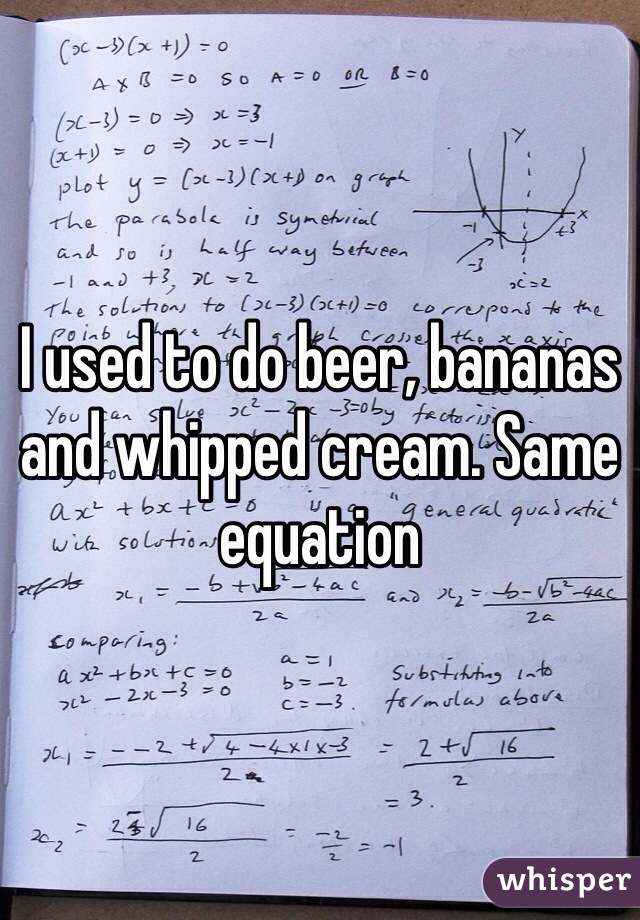 (x-3)(x+1)=0
A x B =0 SO A=0 OR B=0
(x-3)=0 ⇒ x=3
(x+1)=0 ⇒ x=-1
plot y=(x-3)(x+1) on graph
the parabola is symetrical
and so is half way between
-1 and +3, x=2
Y
x
-1
+3
-3
x=2
The solutions to (x-3)(x+1)=0 correspond to the
points where the graph crosses the x axis
I used to do beer, bananas
You can solve x²-2x-3=0 by factoris
and whipped cream. Same
ax²+bx+c=0 is a "general quadratic"
equation
with solutions
x₁ = -b+√b²-4ac / 2a and x₂= -b-√b²-4ac / 2a
Comparing:
ax²+bx+c=0
x²-2x-3=0
a=1
b=-2
c=-3.
Substituting into
formulas above
x₁ = --2+√4-4x1x-3 / 2 = 2+√16 / 2
= 3.
x₂ = 2-√16 / 2 = -2/2 = -1
whisper